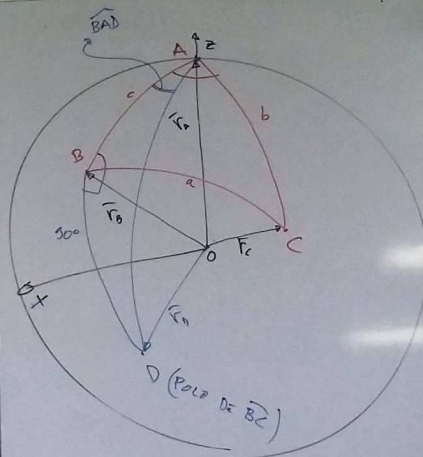 BAD
A
Z
c
r̄A
b
B
a
r̄B
90°
O
r̄C
C
X
r̄D
D (POLO DE BC)